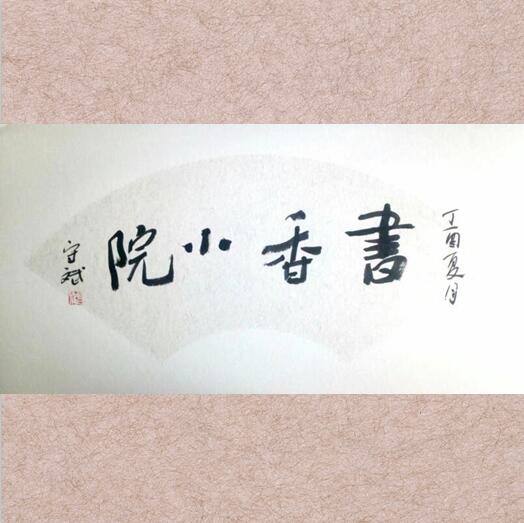 丁酉夏月
書香小院
守斌